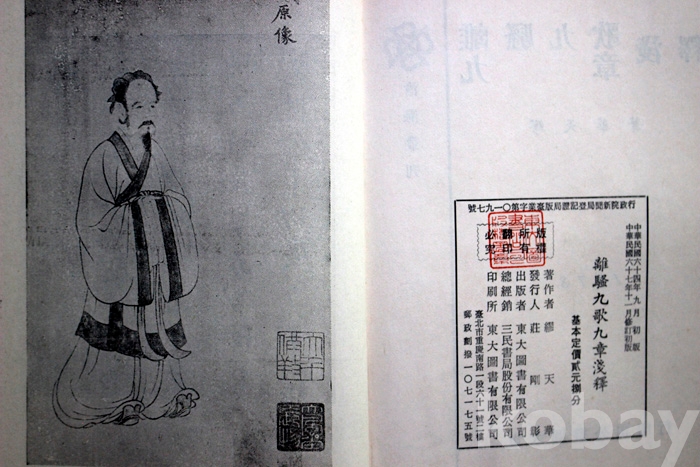 原像
行政院新聞局登記證局版臺業字第〇一九七號
中華民國六十四年九月初版
中華民國六十七年十一月修訂初版
離騷九歌九章淺釋
基本定價貳元捌分
版權
所有
翻印
必究
著作者 繆天華
發行人 莊剛
出版者 東大圖書有限公司
總經銷 三民書局股份有限公司
印刷所 東大圖書有限公司
臺北市重慶南路一段六十一號二樓
郵政劃撥一〇七一七五號
kobay